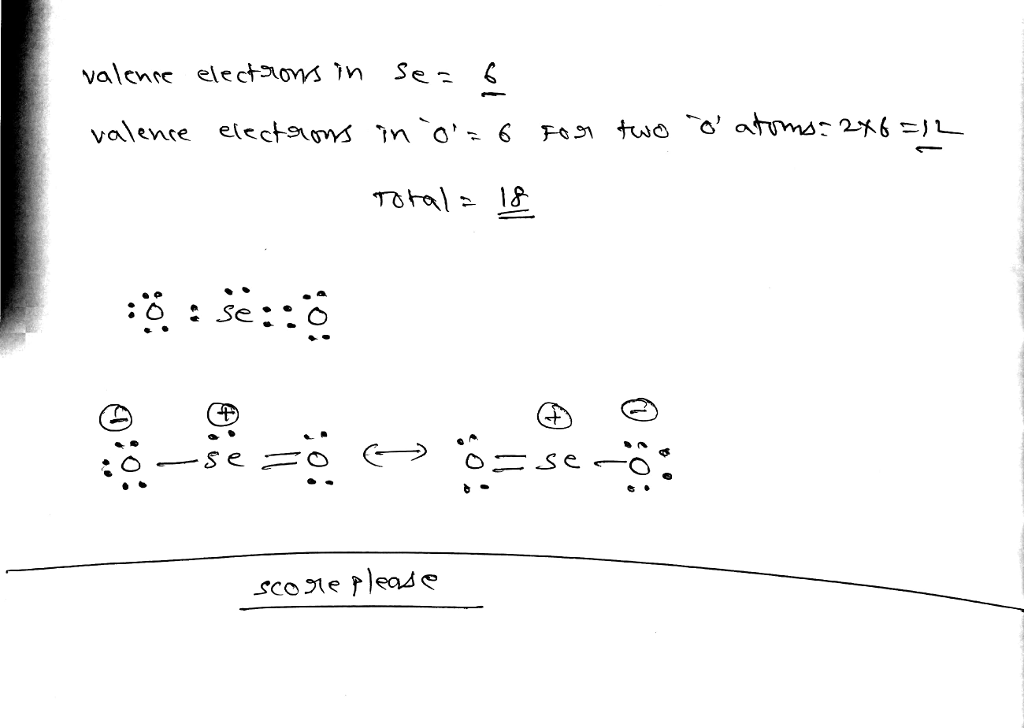 valence electrons in Se = 6
valence electrons in 'O' = 6 For two 'O' atoms = 2×6 = 12
Total = 18
:Ö : Se :: O
⊖ ⊕ ⊕ ⊖
:O — Se = O ↔ O = Se — O:
score please